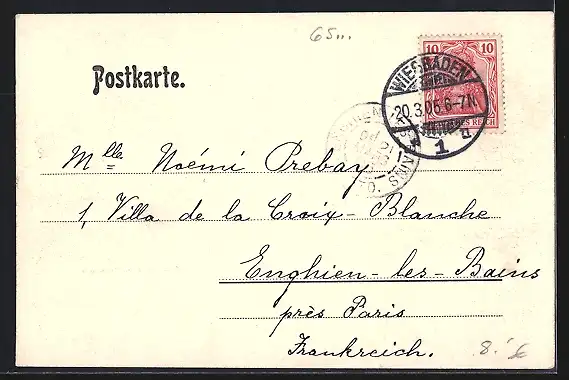 65...
10 10
WIESBADEN
20.3.06.6-7N
1 d
REICH
Postkarte.
Mlle Noémi Prebay
1, Villa de la Croix-Blanche
Enghien-les-Bains
près Paris
Frankreich.